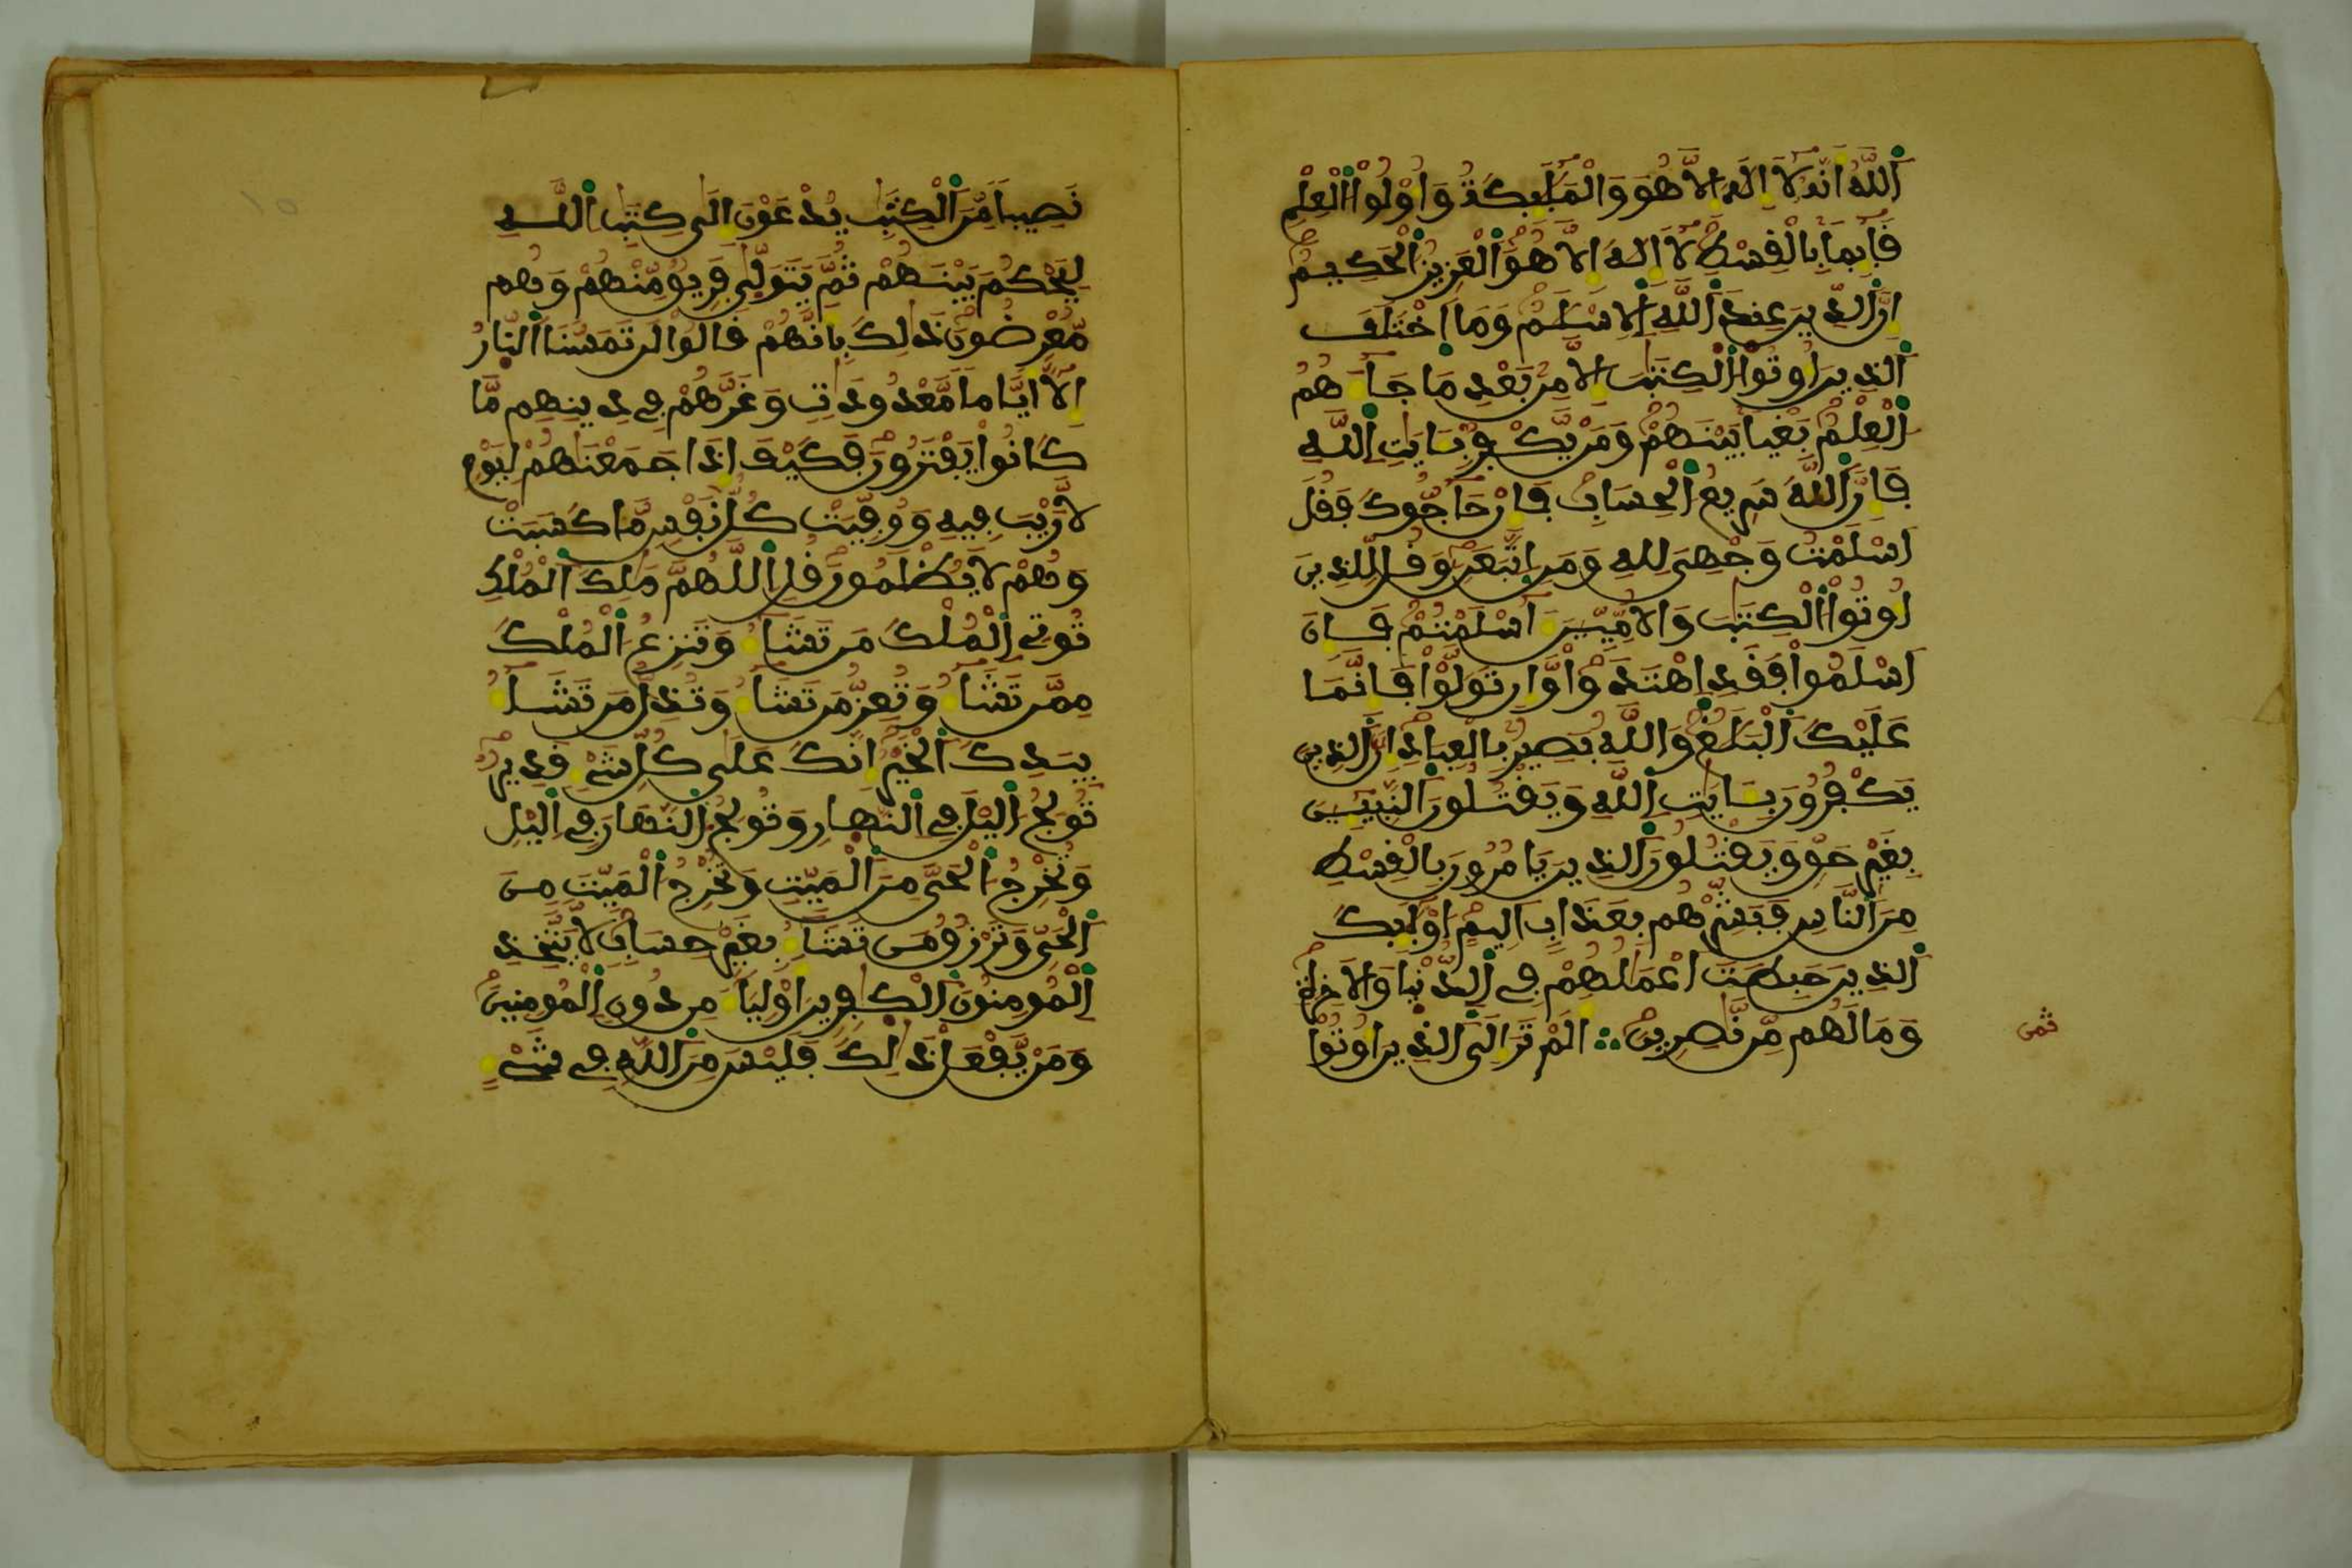 اَللَّهُ أَنَّهُ لَا إِلَهَ إِلَّا هُوَ وَالْمَلَٰٓئِكَةُ وَأُوْلُواْ اٰلْعِلْمِ
قَآئِمَاَۢ بِالْقِسْطِ لَا إِلَهَ إِلَّا هُوَ اَٰلْعَزِيزُ اٰلْحَكِيمُ
إِنَّ اَٰلدِّينَ عِندَ اَٰللَّهِ اِٰلْإِسْلَٰمُ وَمَا اَٰخْتَلَفَ
اَٰلذِينَ أُوتُواْ اٰلْكِتَٰبَ إِلَّا مِنۢ بَعْدِ مَا جَآءَهُمُ
اٰلْعِلْمُ بَغْياَۢ بَيْنَهُمْ وَمَنْ يَّكْفُرْ بِـَٔايَٰتِ اِٰللَّهِ
فَإِنَّ اَٰللَّهَ سَرِيعُ اٰلْحِسَابِ فَإِنْ حَآجُّوكَ فَقُلَ
اَسْلَمْتُ وَجْهِىَ لِلهِ وَمَنِ اِٰتَّبَعَنِۦ وَقُل لِّلذِينَ
أُوتُواْ اٰلْكِتَٰبَ وَالْأُمِّيِّـۧنَ ءَآسْلَمْتُمْ فَإِنَ
اَسْلَمُواْ فَقَدِ اِٰهْتَدَواْ وَّإِن تَوَلَّوْاْ فَإِنَّمَا
عَلَيْكَ اَٰلْبَلَٰغُ وَاللَّهُ بَصِيرُۢ بِالْعِبَادِ إِنَّ اَٰلذِينَ
يَكْفُرُونَ بِـَٔايَٰتِ اِٰللَّهِ وَيَقْتُلُونَ اَٰلنَّبِيٓـِٕۧنَ
بِغَيْرِ حَقٍّ وَيَقْتُلُونَ اَٰلذِينَ يَامُرُونَ بِالْقِسْطِ
مِنَ اَٰلنَّاسِ فَبَشِّرْهُم بِعَذَابٍ اَلِيمٍ اُوْلَٰٓئِكَ
اَٰلذِينَ حَبِطَتَ اَعْمَٰلُهُمْ فِے اِٰلدُّنْيَا وَالْأَخِرَةِ
وَمَا لَهُم مِّن نَّٰصِرِينَ أَلَمْ تَرَ إِلَى اَٰلذِينَ أُوتُواْ
ثمن
نَصِيباٗ مِّنَ اَٰلْكِتَٰبِ يُدْعَوْنَ إِلَىٰ كِتَٰبِ اِٰللَّهِ
لِيَحْكُمَ بَيْنَهُمْ ثُمَّ يَتَوَلَّىٰ فَرِيقٌ مِّنْهُمْ وَهُم
مُّعْرِضُونَ ذَٰلِكَ بِأَنَّهُمْ قَالُواْ لَن تَمَسَّنَا اَٰلنَّارُ
إِلَّا أَيَّاماٗ مَّعْدُودَٰتٍ وَغَرَّهُمْ فِے دِينِهِم مَّا
كَانُواْ يَفْتَرُونَ فَكَيْفَ إِذَا جَمَعْنَٰهُمْ لِيَوْمٍ
لَّا رَيْبَ فِيهِ وَوُفِّيَتْ كُلُّ نَفْسٍ مَّا كَسَبَتْ
وَهُمْ لَا يُظْلَمُونَ قُلِ اِٰللَّهُمَّ مَٰلِكَ اَٰلْمُلْكِ
تُوتِے اِٰلْمُلْكَ مَن تَشَآءُ وَتَنزِعُ اٰلْمُلْكَ
مِمَّن تَشَآءُ وَتُعِزُّ مَن تَشَآءُ وَتُذِلُّ مَن تَشَآءُ
بِيَدِكَ اَٰلْخَيْرُ إِنَّكَ عَلَىٰ كُلِّ شَےْءٖ قَدِيرٌ
تُولِجُ اٰليْلَ فِے اِٰلنَّهَارِ وَتُولِجُ اٰلنَّهَارَ فِے اِٰليْلِ
وَتُخْرِجُ اٰلْحَىَّ مِنَ اَٰلْمَيِّتِ وَتُخْرِجُ اٰلْمَيِّتَ مِنَ
اَٰلْحَىِّ وَتَرْزُقُ مَن تَشَآءُ بِغَيْرِ حِسَابٍ لَّا يَتَّخِذِ
اِٰلْمُومِنُونَ اَٰلْكٰفِرِينَ أَوْلِيَآءَ مِن دُونِ اِٰلْمُومِنِينَ
وَمَنْ يَّفْعَلْ ذَٰلِكَ فَلَيْسَ مِنَ اَٰللَّهِ فِے شَےْءٍ